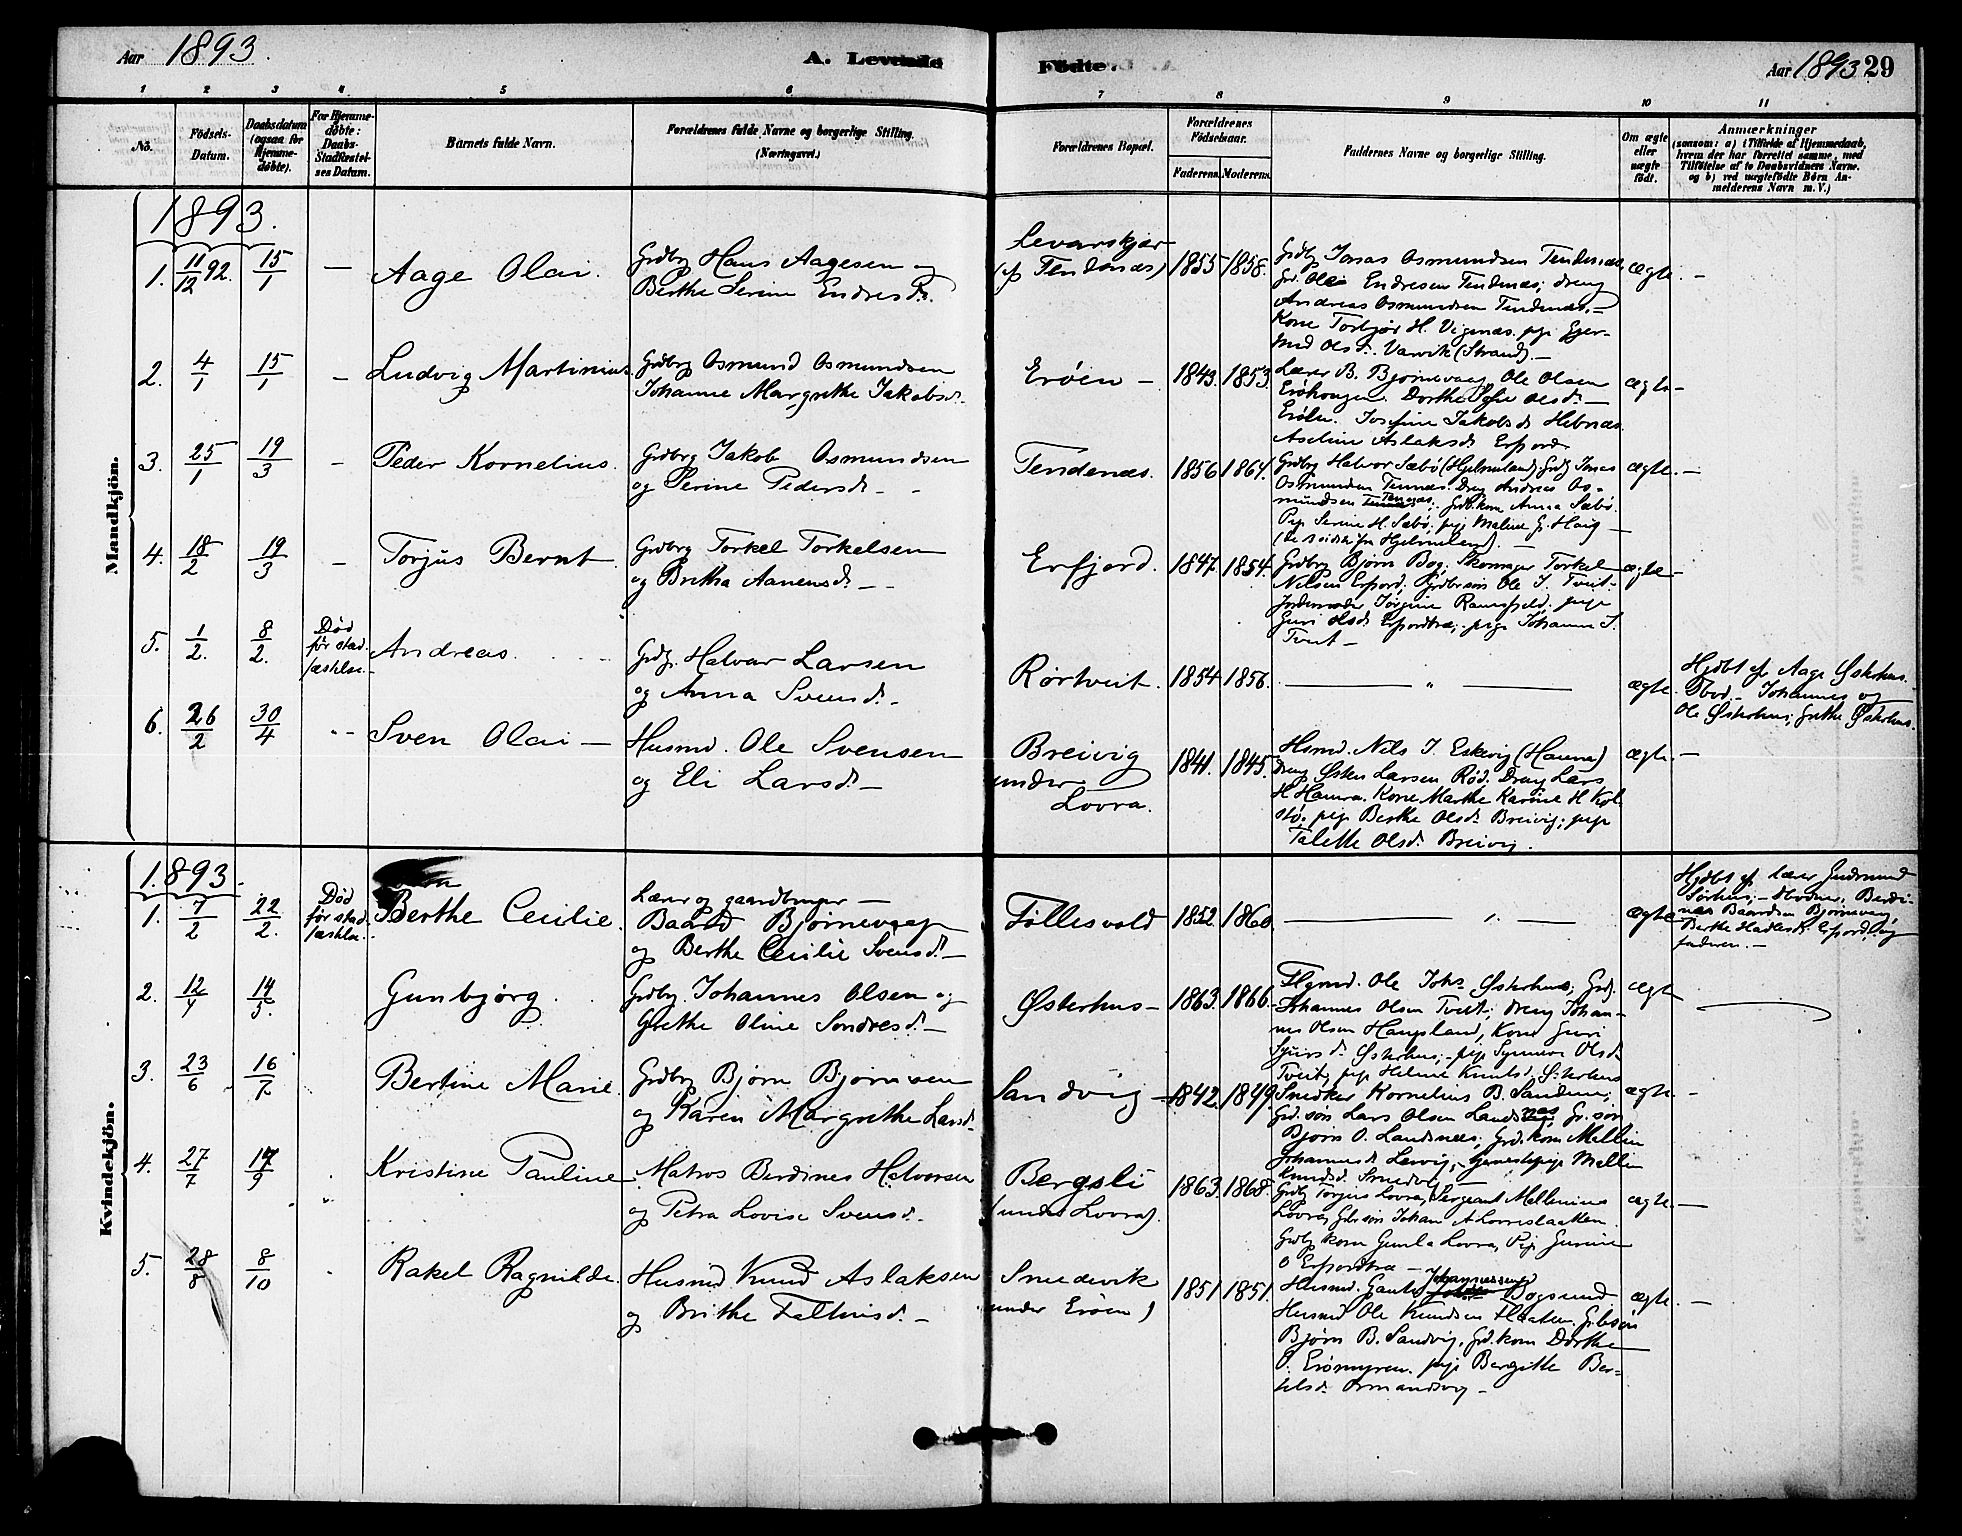 Aar 1893.
A. Levende Födte.
Aar 1893 29
1 2 3 4 5 6 7 8 9 10 11
No.
Födsels-Datum.
Daabsdatum (ogsaa for Hjemmedöbte).
For Hjemmedöbte: Daabs-Stadfæstelses Datum.
Barnets fulde Navn.
Forældrenes fulde Navne og borgerlige Stilling. (Næringsvei.)
Forældrenes Bopæl.
Forældrenes Födselsaar.
Faderens. Moderens.
Faddernes Navne og borgerlige Stilling.
Om ægte eller uægte födt.
Anmærkninger
(saasom: a) i Tilfælde af Hjemmedaab,
hvem der har forrettet samme, med
Tilföielse af to Daabsvidners Navne.
og b) ved uægtefödte Börn An-
melderens Navn m. V.)
Mandkjön.
1893.
1. 11/12 92. 15/1 — Aage Olai.
Grdbrg Hans Aagesen og
Berthe Serine Endresd.
Levarskjær
(p Tendenæs)
1855 1858.
Grdbrg Jonas Osmundsen Tendenæs,
Gr. Ole Endresen Tendenæs; dreng
Andreas Osmundsen Tendenæs.—
Kone Torbjør H. Vignæs. pige
Olsd. Varvik (Strand).—
ægte. —
2. 4/1 15/1 — Ludvig Martinius.
Grdbrg Osmund Osmundsen
Johanne Margrethe Jakobsd.
Erøen —
1843. 1853.
Lærer B. Bjørnevaag, Ole Olsen
Erøhaugen. Dorthe Olsd. —
Erøen. Josefine Jakobsd. Hebnæs.
Aseline Aslaksd. Erfjord.
ægte —
3. 25/1 19/3 — Peder Kornelius.
Grdbrg Jakob Osmundsen
og Serine Pedersd. —
Tendenæs.
1856 1864.
Grdbrg Halvor Sæbø (Hjelmeland); Grdb Jonas
Osmundsen Tennæs. Dreng Andreas Os-
mundsen Tennæs; Grdb.kone Anna Sæbø.
Pige Serine H. Sæbø; pige Malene G. Haug —
fra Hjelmeland). —
ægte. —
4. 18/2 19/3 — Torjus Bernt
Grdbrg Torkel Torkelsen
og Britha Aanensd. —
Erfjord.
1847. 1854.
Grdbrg Bjørn Bog; Skomager Torkel
Nilsen Erfjord; Grdbrsøn Ole J. Tveit.
Jordemoder Jørgine Ramsfjeld. pige
Guri Olsd. Erfjordtræ; pige Johanne J.
Tveit —
ægte —
5. 1/2. 8/2. Død før stadfæstelse. Andreas.
Grdbr. Halvor Larsen
og Anna Svensd. —
Rørtveit.
1854 1856.
— " —
ægte.
Hjdbt af Aage Østerhus.
Tbod.— Johannes og
Ole Østerhus; Grethe Østerhus.
6. 26/2 30/4 Sven Olai —
Husmd. Ole Svensen
og Eli Larsd. —
Breivig
under
Lovra.
1841. 1845.
Husmd. Nils J. Eskevig (Hamre)
dreng Østen Larsen Rød. Dreng Lars
H Hamra. Kone Marthe Karine H Kol-
stø. pige Berthe Olsd. Breivig; pige
Talette Olsd. Breivig.
ægte. —
Kvindekjön.
1893.
1. 7/2 22/2. Død før stadfæstelse. Berthe Cecilie.
Lærer og gaardbruger —
Baard Bjørnevaag
og Berthe Cecilie Svensd. —
Føllesvold
1852. 1860
— " —
ægte
Hjdbt af lærer Gudmund
Sørhus; — Berdi-
nes Baardsen Bjørnevaag,
Berthe Hadlesd. Erfjord, og
faderen. —
2. 12/4 14/5. Gunbjørg.
Grdbrg. Johannes Olsen og
Grethe Oline Sondresd. —
Østerhus —
1863. 1866.
Ole Johs. Østerhus; Grdb.
Johannes Olsen Tveit; dreng Johan-
nes Olsen Haugland, Kone Guri
Sjursd. Østerhus; — pige Synneve Olsd.
Tveit; pige Helene Knutsd. Østerhus
ægte —
3. 23/6 16/7 Bertine Marie.
Grdbrg Bjørn Bjørnsen
og Karen Margrethe Larsd.
Sandvig —
1842. 1849.
Snedker Kornelius B. Sandvig;
Grd. søn Lars Olsen Landsnæs; Gr. søn
Bjørn O. Landsnæs; Grd. kone Mallin
Johannesd. Lervig; — tjenestepige Mallin
Knudsd. Smedvig —
ægte. —
4. 27/7 17/9 Kristine Pauline
Matros Berdines Halvorsen
og Petra Lovise Svensd. —
Bergsli
(under Lovra).
1863. 1868.
Grdbg Torgus Lovra, Sergeant Mallenius
Lovra, Gbrsøn Johan A Lovreslaatten.
Grdbg kone Gunla Lovra, Pige Gurine
O Erfjordtræ —
ægte. —
5. 28/8 8/10 Rakel Ragnilde.
Husmd Knud Aslaksen
og Brithe Faltinsd. —
Smedevik
under Erøen)
1851 1851.
Husmd. Gaute Johannessen Bogsund
Husmd Ole Knudsen Haaten. Grbsøn
Bjørn B. Sandvig, Grd.kone Dorthe
O. Erømyren. pige Bergitte Ber-
telsd. Ormandsvig —
ægte. —